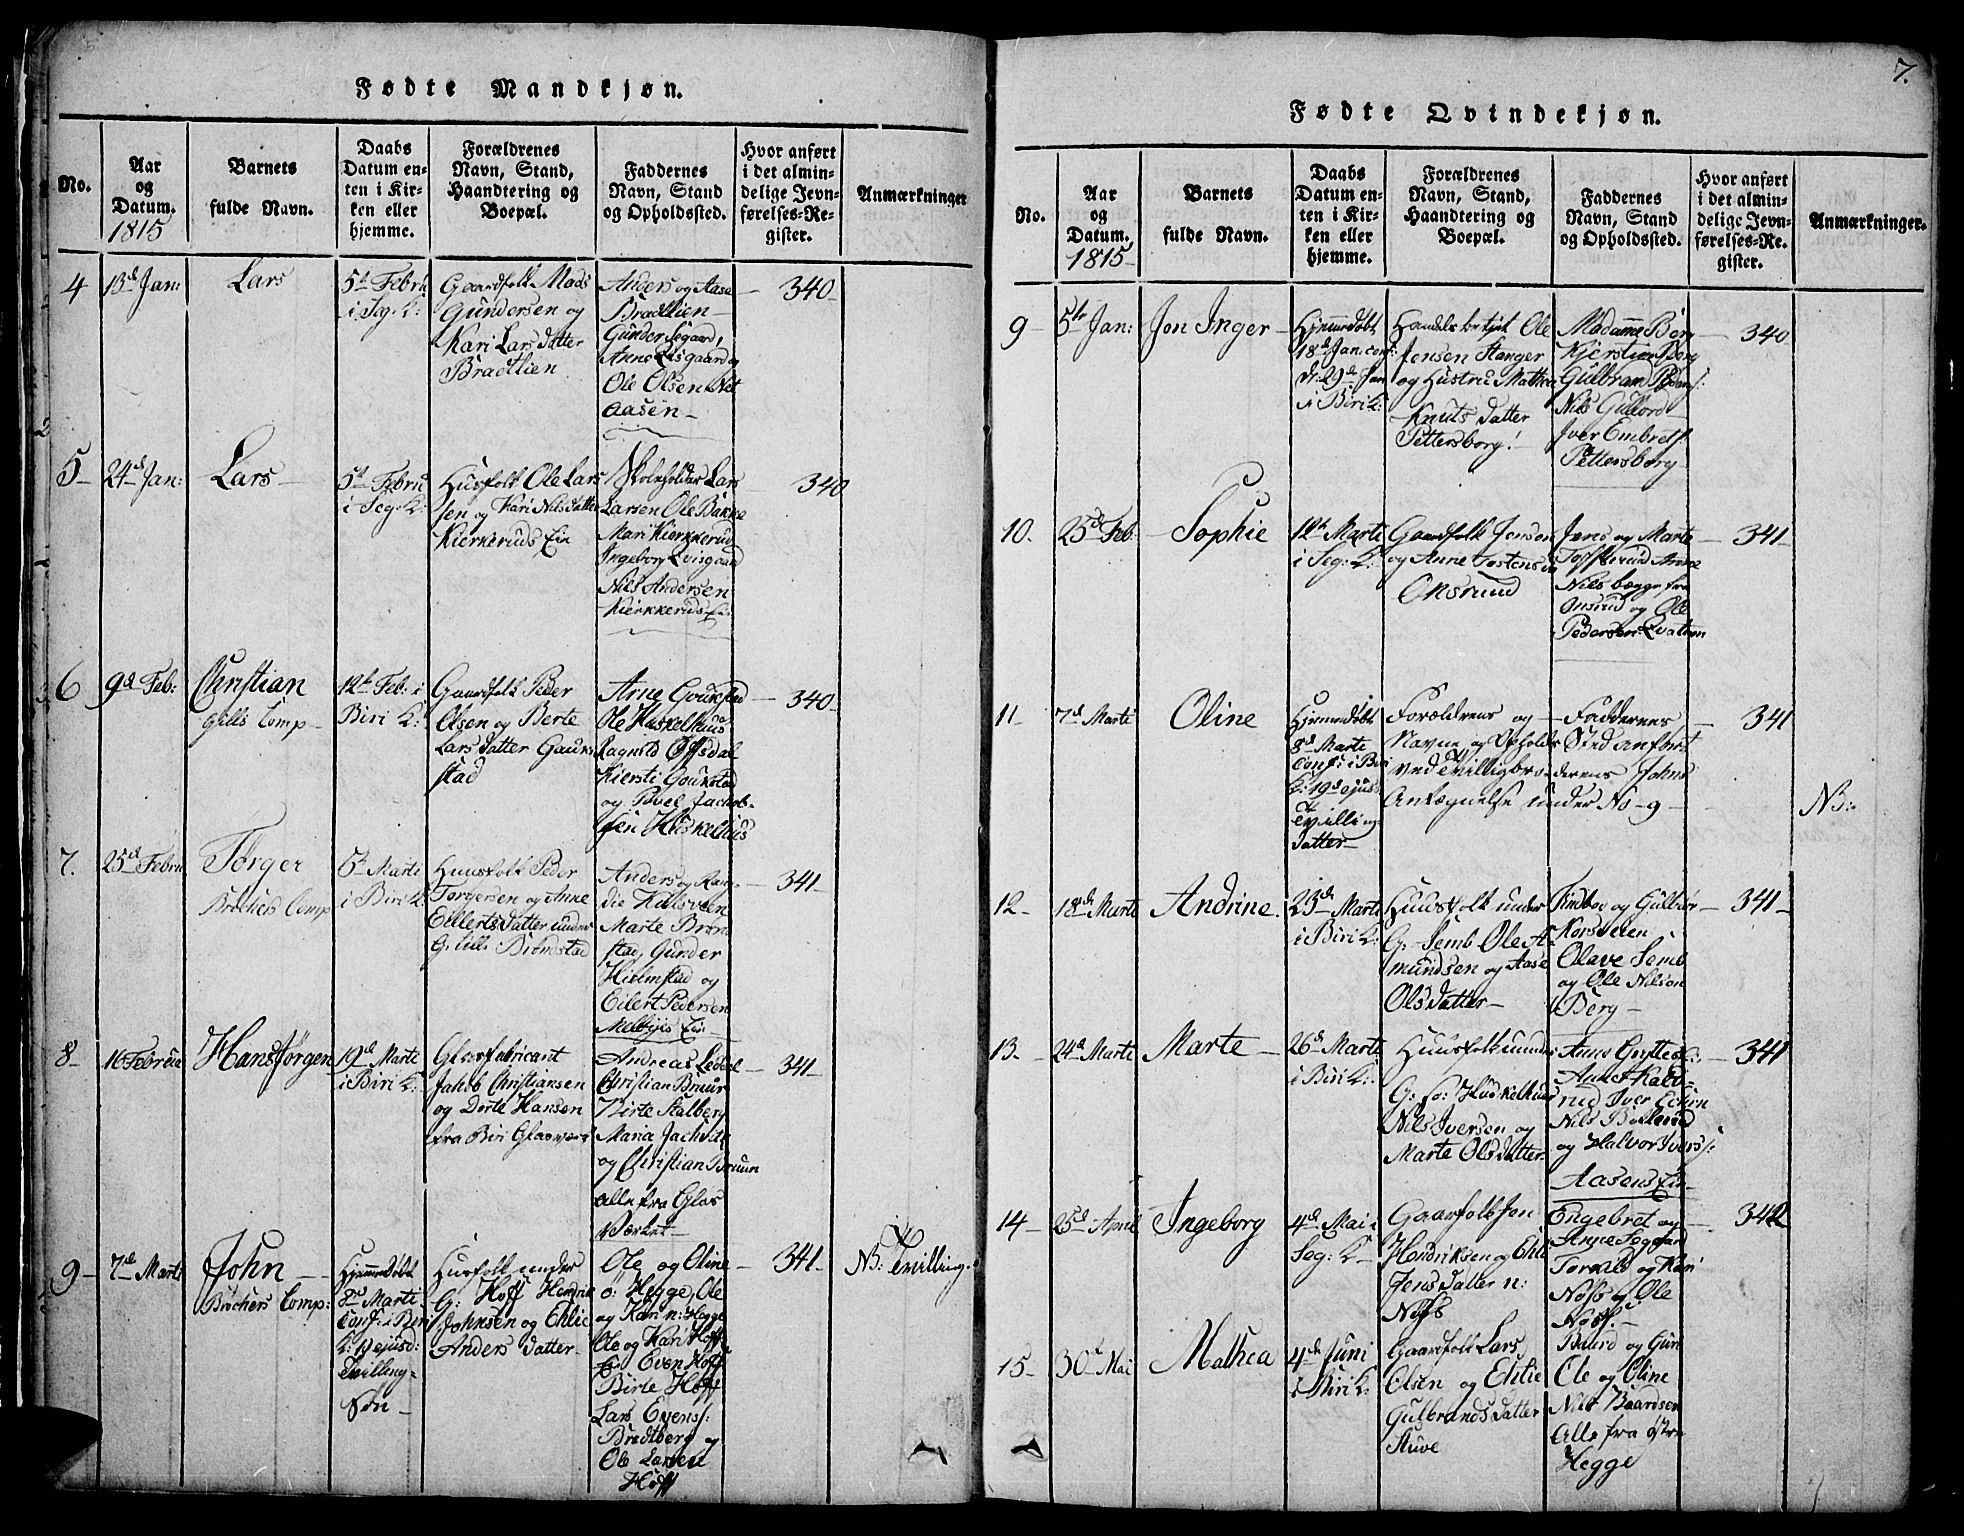 Fødte Mandkjøn.
No.
Aar
og
Datum.
1815
Barnets
fulde Navn.
Daabs
Datum en-
ten i Kir-
ken eller
hjemme.
Forældrenes
Navn, Stand,
Haandtering og
Boepæl.
Faddernes
Navn, Stand
og Opholdssted.
Hvor anført
i det almin-
delige Jevn-
førelses-Re-
gister.
Anmærkninger
4
13d Jan:
Lars
5t Febru
i Seg. K:
Gaardfolk Mads
Gundersen og
Kari Lars datter
Bradtlien
Anders og Aase
Bradtlien
Gunder Segaard,
Anne
og
Ole Olsen
Aasen
340
5
24d Jan:
Lars
5t Febru
i Seg. K:
Husfolk Ole Lar
sen og Kari Nilsdatter
Kierkeruds Eie
Skoleholder Lars
Larsen Ole Bakke
Mari Kierkkerud
Ingeborg
Nils Andersen
Kierkkeruds Ei:
340
6
9d Feb:
Christian
12t Feb: i
Biri K:
Gaardfolk Peder
Olsen og Berte
Lars datter Gauk
stad
Arne Goukstad
Ole Huskelhus
Ragnild
Kiersti Goukstad
og Povel Jachob-
sen Huskelhus
340
7.
25d Febru
Torger
5t Marti
i Biri K:
Huusfolk Peder
Torgersen og Anne
Eillerts datter under
G: lille Bromstad
Anders og Ran-
die Kalsveen
Marte Brom
stad, Gunder
Hielmstad og
Eilert Pedersen
Melbyes Eie
341
8
16 Februa
Hans Jørgen
19d Marte
i Biri K:
Glasfabricant
Jakob Christiansen
og Dorte Hansen
fra Biri Glasværk
Andreas
Christian Bruun
Birte Stalberg
Maria
og Christian Bruun
alle fra Glas
Værket
341
9
7de Marti
John
Hjemmedøbt
8de Marti
Conf: i Biri
K: 19 ejusd:
Tvilling-
Søn
Husfolk under
G: Hoff Hendrik
Johnsen og Ehlie
Anders datter
Ole og Oline
ø: Hegge, Ole
og Kari n: Hegge
Ole og Kari Hoff
Even Hoff
Birte Hoff
Lars Evens:
Bredtberg og
Ole Larsen
Hoff
341
NB: Tvilling
7.
Fødte Qvindekjøn.
No.
Aar
og
Datum.
1815
Barnets
fulde Navn.
Daabs
Datum en-
ten i Kir-
ken eller
hjemme.
Forældrenes
Navn, Stand,
Haandtering og
Boepæl.
Faddernes
Navn, Stand
og Opholdssted.
Hvor anført
i det almin-
delige Jevn-
førelses-Re-
gister.
Anmærkninger.
9
5te Jan:
Jon Inger
Hjemmedøbt
18d Jan. conf:
d: 29de Jan
i Biri K:
Handelsbetjent Ole
Jensen Stanger
og Hustru Mathea
Knuts datter
Pettersborg
Madamme Berg
Kjerstine Berg
Gulbran
Nils Gullord
Iver Embrets:
Pettersborg
340
10.
25d Feb:
Sophie
12te Marti
i Seg: K:
Gaardfolk Jens
og Anne
Onsrud
Jens og Marte
Tofsterud Arne
Nils begge fra
Onsrud og Ole
Pedersen
341
11
7d Marti
Oline
Hjemmedøbt
8d Marti
Conf: i Biri
K: 19d ejus
Tvilling
datter
Forældrenes og
Navne og Opholds
ved Tvillingbro
Antegnelse under No 9
Faddernes
Sted anført
derens Johns
341
NB:
12
18de Marti
Andrine
23de Marti
i Biri K:
Huusfolk under
G: Semb Ole A-
mundsen og Aase
Olsdatter
Sindbov og Gulbiør
Korsveien
Olave Semb
og Ole Nilsøn
Berg
341
13
24d Marte
Marte
26d Marti
i Biri K:
Huusfolk under
G: sø: Huskelhus
Nils Iversen og
Marte Olsdatter
Anne
rud Iver
Nils
og Halvor Ivers:
Aasens Eie
341
14
25d April
Ingeborg
4d Mai i
Seg: K
Gaarfolk Jon
Hendriksen og Ehli
Jens datter n:
Nøss
Engebret og
Anne Seggard
Torvald og Kari
Nøss og Ole
Nøss.
342
15
30t Mai
Mathea
4d Juni
i Biri K:
Gaardfolk Lars
Olsen og Ehlie
Gulbrands datter
Stuve
Baard og Guri
Ole og Oline
Nils Baardsen
Alle fra østre
Hegge